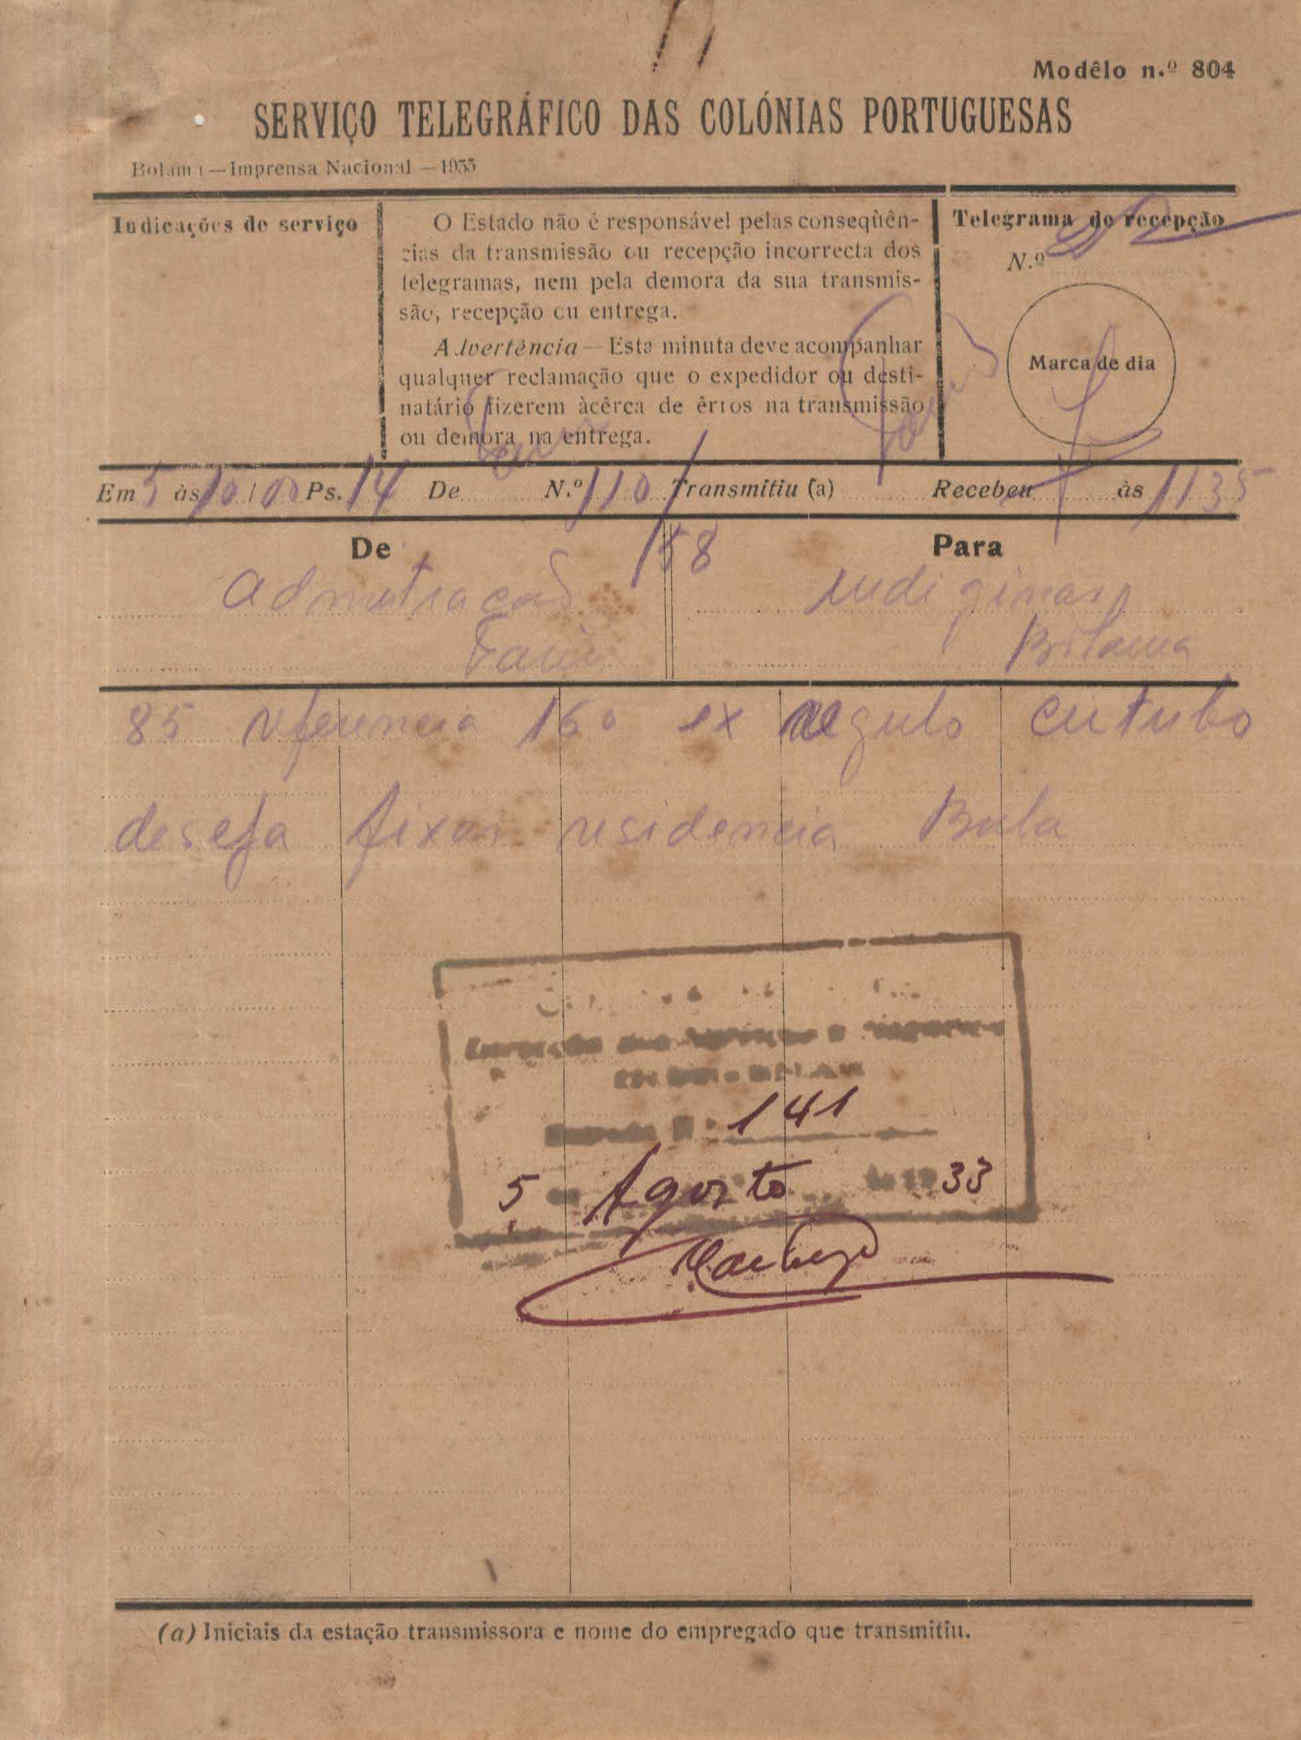 Modêlo n.º 804
SERVIÇO TELEGRÁFICO DAS COLÓNIAS PORTUGUESAS
Bolama — Imprensa Nacional — 1933
Indicações de serviço
O Estado não é responsável pelas conseqüên-
cias da transmissão ou recepção incorrecta dos
telegramas, nem pela demora da sua transmis-
são, recepção ou entrega.
Advertência — Esta minuta deve acompanhar
qualquer reclamação que o expedidor ou desti-
natário fizerem àcêrca de êrros na transmissão
ou demora na entrega.
Telegrama de recepção
N.º
Marca de dia
Em 5 às 10/00 Ps. 14 De N.º 110 Transmitiu (a) Recebeu às 1135
158
De
Para
Indiginas
Bolama
85 referencia 16º ex regulo Cutubo
deseja fixar residencia Bula
141
5 Agosto de 1933
(a) Iniciais da estação transmissora e nome do empregado que transmitiu.